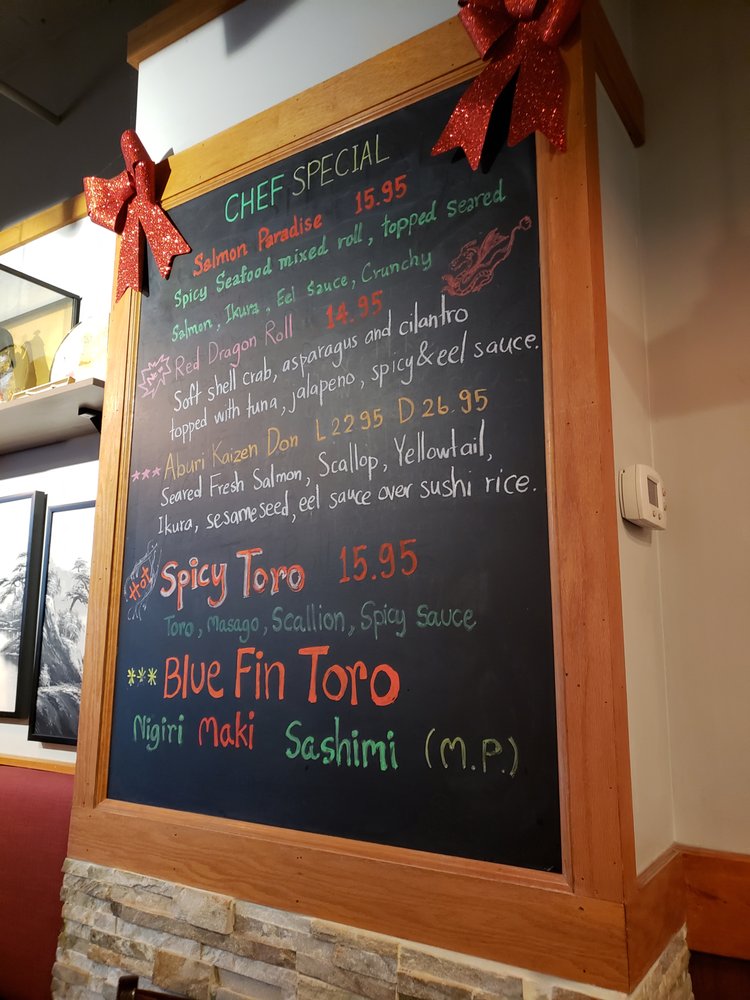 CHEF SPECIAL
Salmon Paradise 15.95
Spicy Seafood mixed roll, topped seared
Salmon, Ikura, Eel sauce, Crunchy
Red Dragon Roll 14.95
Soft shell crab, asparagus and cilantro
topped with tuna, jalapeno, spicy & eel sauce.
*** Aburi Kaizen Don L 22.95 D 26.95
Seared Fresh Salmon, Scallop, Yellowtail,
Ikura, sesameseed, eel sauce over sushi rice.
HOT Spicy Toro 15.95
Toro, Masago, Scallion, Spicy Sauce
*** Blue Fin Toro
Nigiri Maki Sashimi (M.P.)